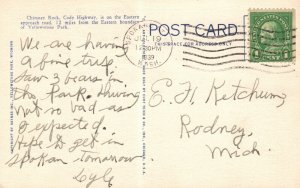 Chimney Rock, Cody Highway, is on the Eastern
approach road, 12 miles from the Eastern boundary
of Yellowstone Park.
We are having
a fine trip.
Saw 3 bears in
the Park. Driving
not so bad as
I expected.
Hope to get in
Spokan tomorrow
Lyle
POST CARD
THIS SPACE FOR ADDRESS ONLY
PM
1939
WASH.
E. H. Ketchum,
Rodney,
Mich.